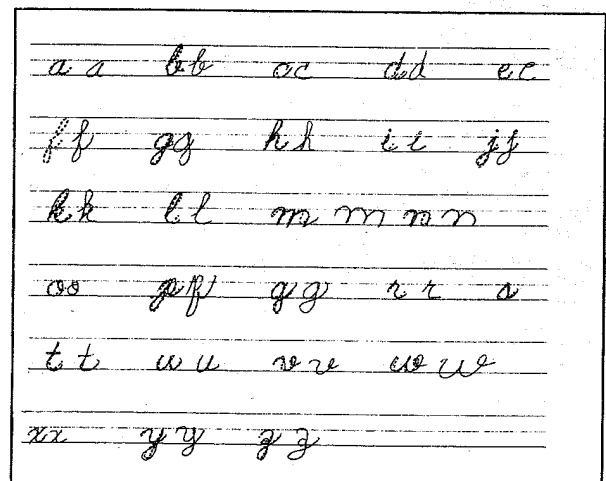 a a b b c c d d e e
f f g g h h i i j j
k k l l m m n n
o o p p q q r r s
t t u u v v w w
x x y y z z